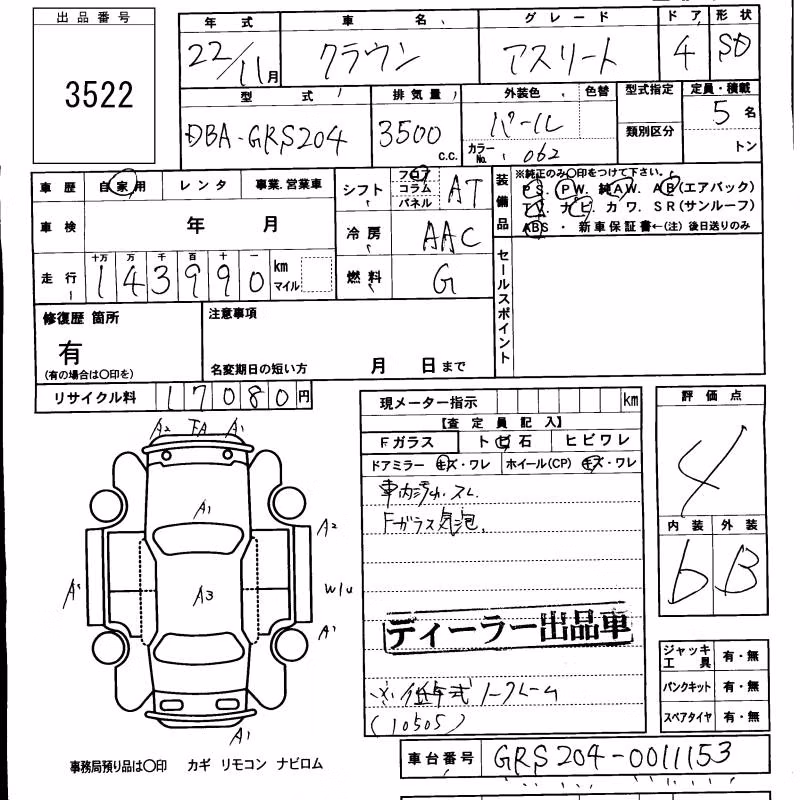 出品番号
3522
年式 車名 グレード ドア 形状
22/11月 クラウン アスリート 4 SD
型式 排気量 外装色 色替 型式指定 定員・積載
DBA-GRS204 3500 c.c. パール 5名
カラーNo. 062 類別区分 トン
車歴 自家用 レンタ 事業.営業車
シフト フロア コラム パネル AT
装備品
※純正のみ○印をつけて下さい。
PS. PW. 純AW. AB(エアバック)
TV ナビ カワ. SR(サンルーフ)
ABS ・ 新車保証書←(注)後日送りのみ
車検 年 月
冷房 AAC
走行 十万 万 千 百 十 一
143990 km マイル
燃料 G
セールスポイント
修復歴 箇所
有
(有の場合は○印を)
注意事項
名変期日の短い方 月 日まで
リサイクル料 17080円
現メーター指示 km
【査定員記入】
Fガラス トビ石 ヒビワレ
ドアミラー キズ・ワレ ホイール(CP) キズ・ワレ
車内汚れ.スレ.
Fガラス気泡.
ディーラー出品車
※低年式ノークレーム
(10505)
評価点
4
内装 外装
b B
ジャッキ工具 有・無
パンクキット 有・無
スペアタイヤ 有・無
A2 A1
A1
A2
A3
W/U
A1
A1
事務局預り品は○印 カギ リモコン ナビロム
車台番号 GRS204-0011153